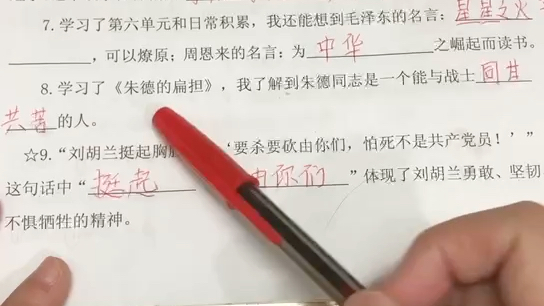 7.学习了第六单元和日常积累，我还能想到毛泽东的名言：星星之火
，可以燎原；周恩来的名言：为 中华 之崛起而读书。
8.学习了《朱德的扁担》，我了解到朱德同志是一个能与战士 同甘
共苦 的人。
☆9.“刘胡兰挺起胸 ‘要杀要砍由你们，怕死不是共产党员！’”
这句话中“ 挺起 由你们 ”体现了刘胡兰勇敢、坚韧
不惧牺牲的精神。